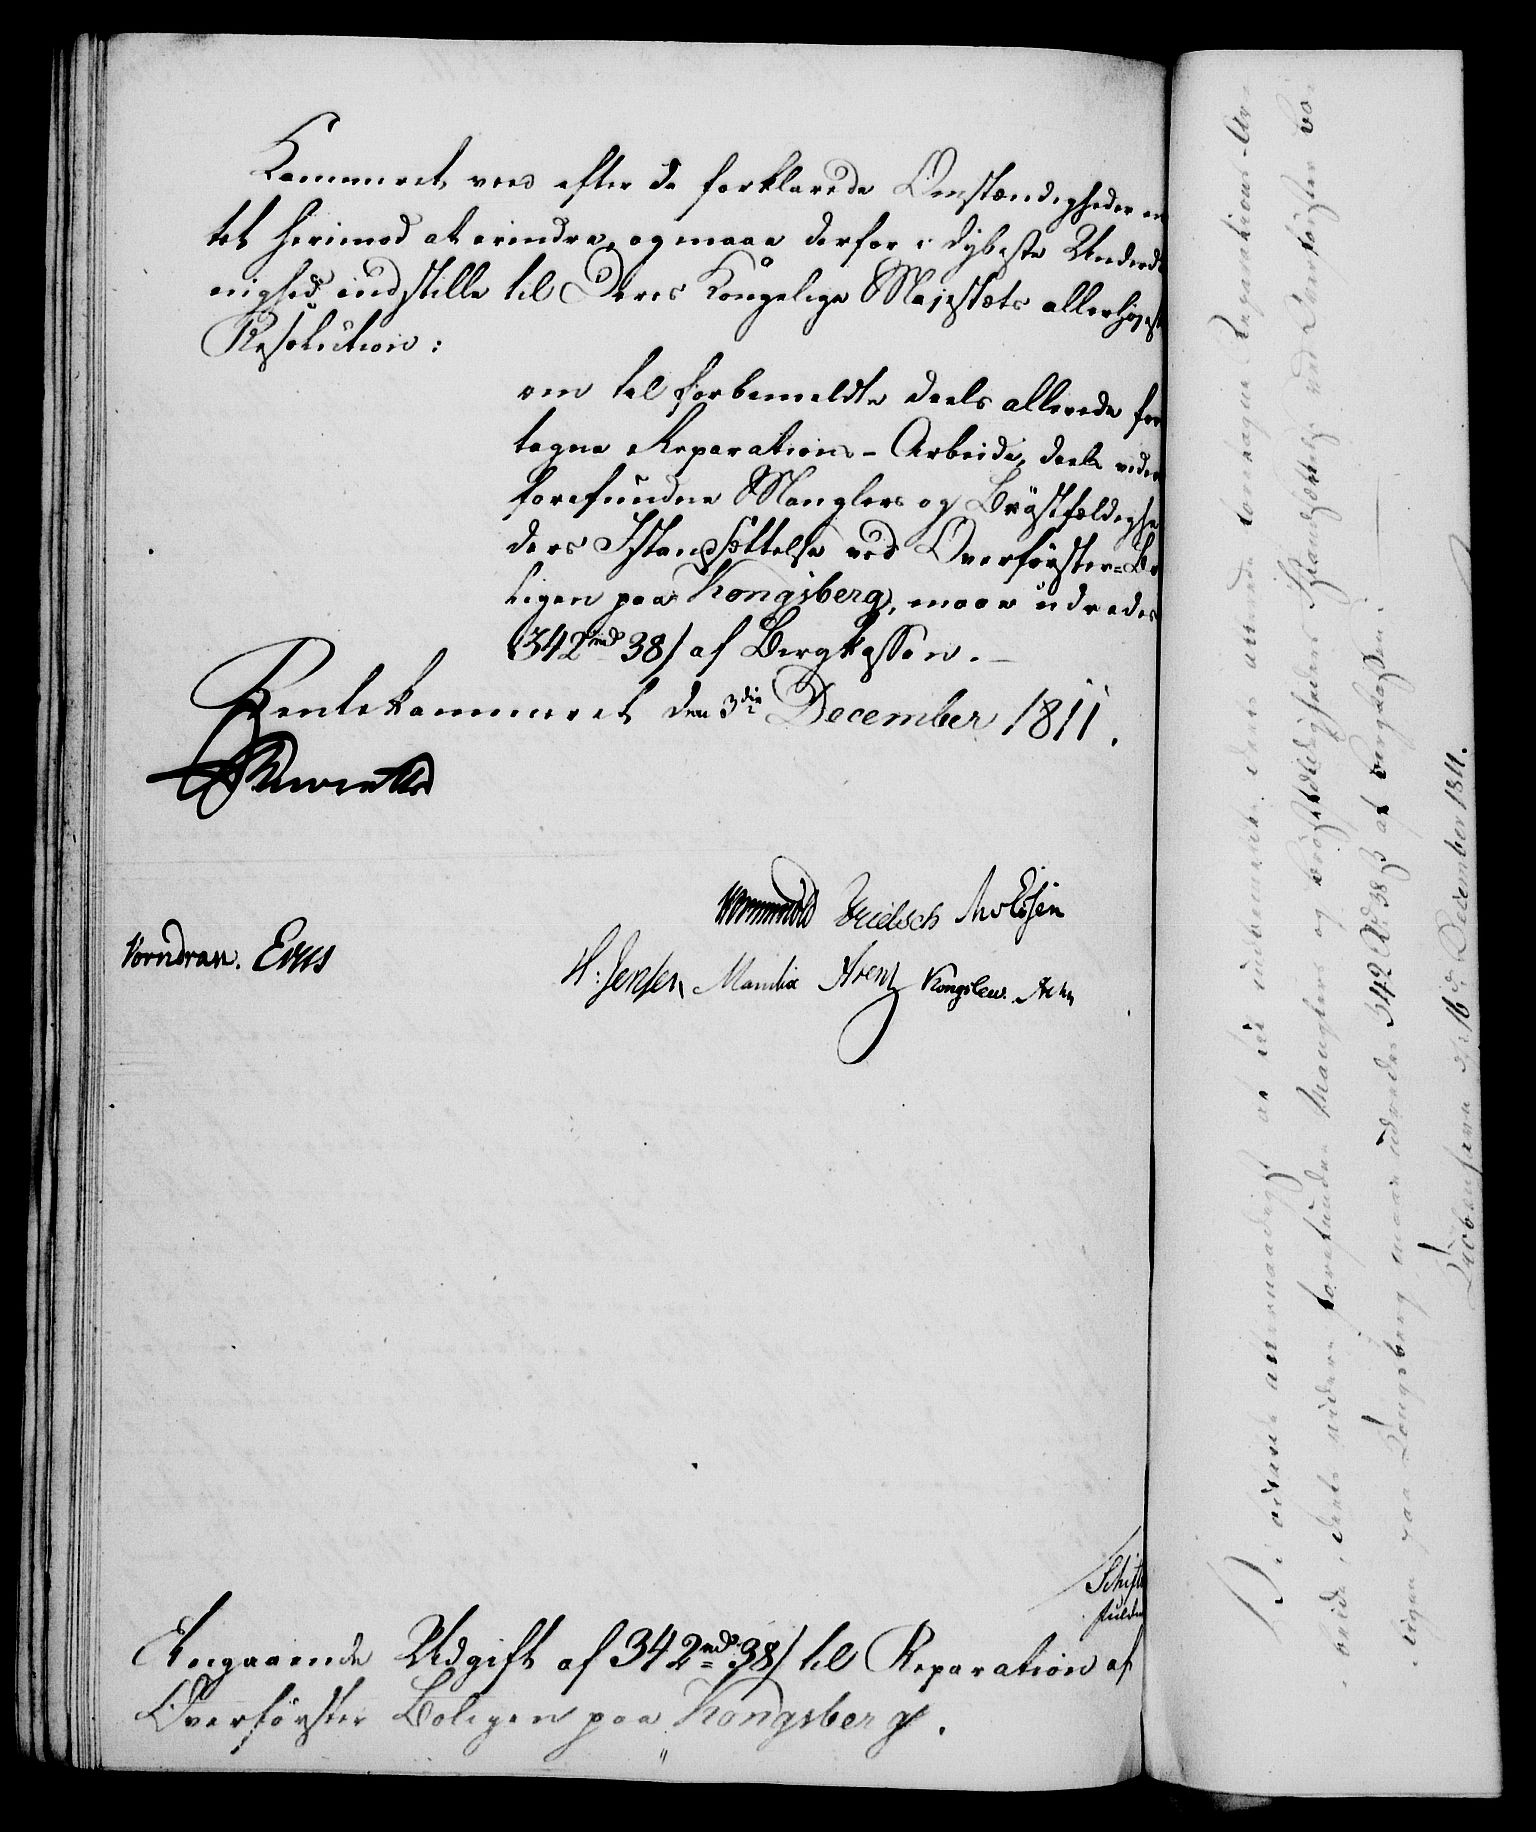 Kammeret veed efter de forklarede Omstændigheder in
tet herimod at erindre, og maae derfor i dybeste Underda
nighed indstille til Deres Kongelige Majestæts allerhøyeste
Resolution:
om til forbemeldte deels allerede fore
tagne Reparations-Arbeide, deels videre
forefundne Manglers og Bröstfældighe
ders Istandsættelse ved Overförster-Bo
ligen paa Kongsberg, maae udredes
342 rd 38 s af Bergkassen.
Rentekammeret den 3die December 1811.
Vorndran. Evers
H: Jensen Manthe Arentz Kongslew.
Angaaende Udgift af 342 rd 38 s til Reparation af
Overförster Boligen paa Kongsberg.
Vi ville allernaadigst at til indbemeldte deels allerede foretagne Reparations-Ar-
beide, deels videre forefundne Manglers og Bröstfældigheders Istandsættelse ved Overförster Bo-
ligen paa Kongsberg, maae udredes 342 Rd 38 s af Bergkassen.
Kiöbenhavn d. 16 d. December 1811.